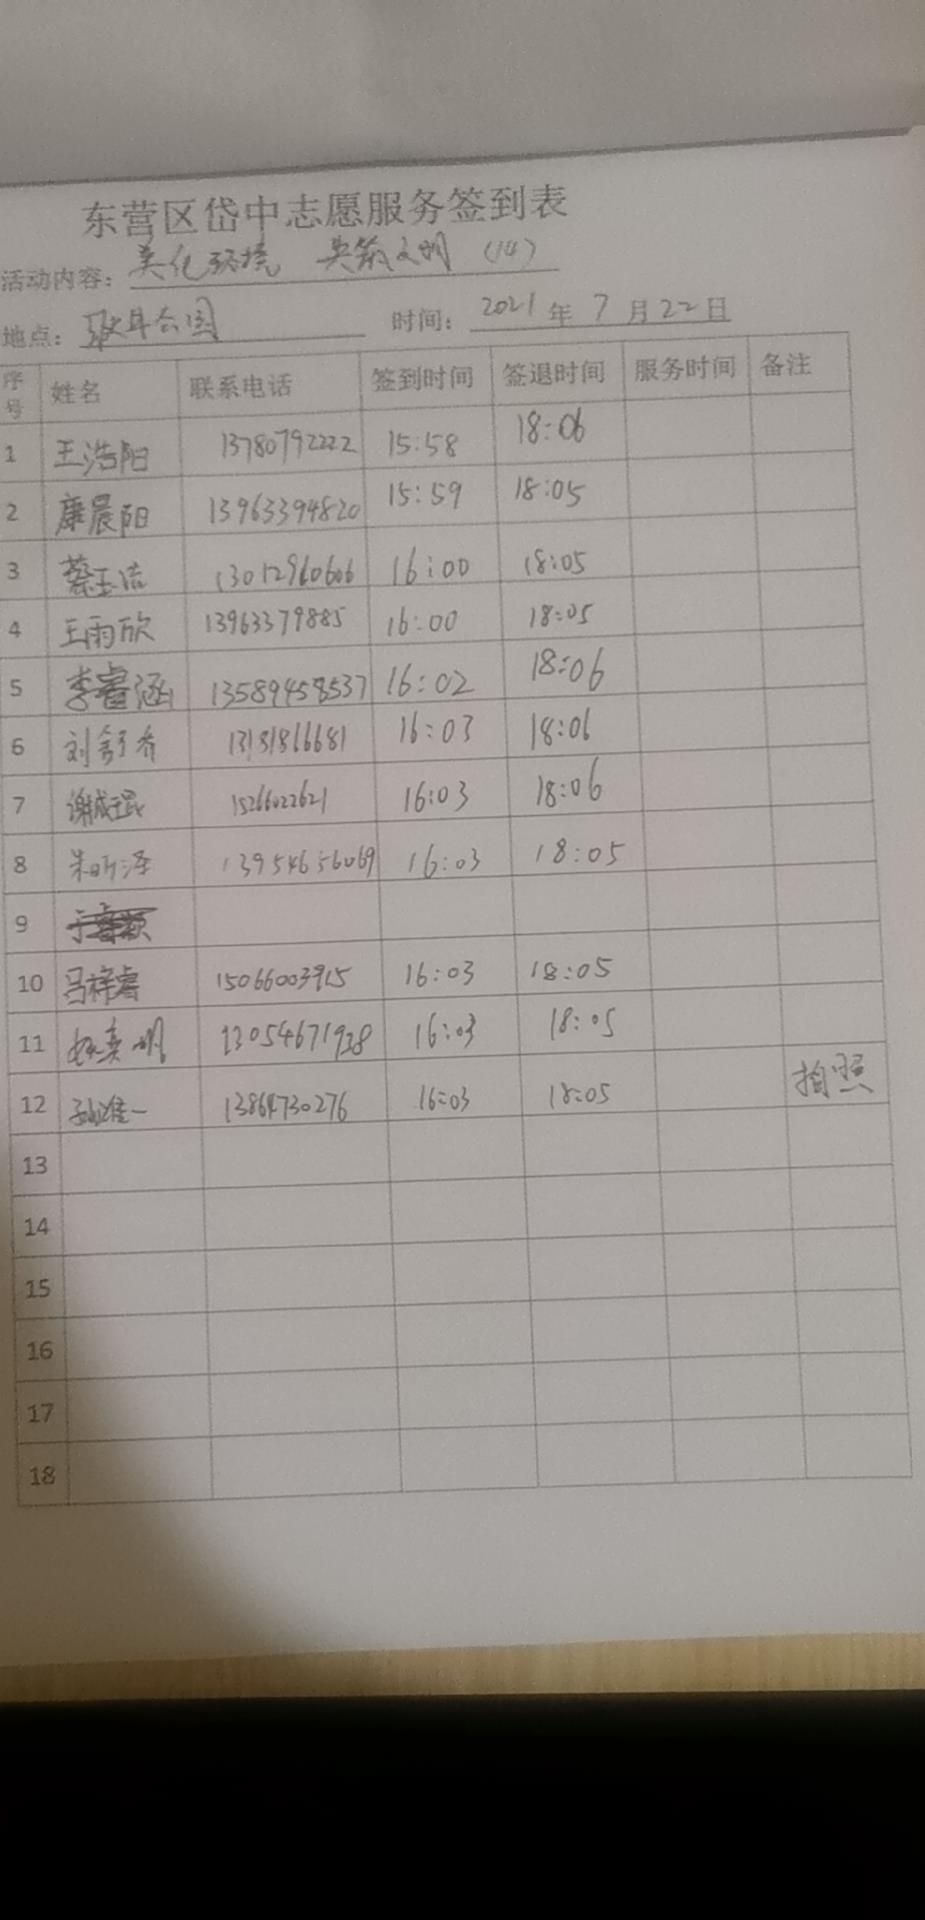 东营区岱中志愿服务签到表
活动内容: 美化环境 共筑文明 (14)
地点: 公园 时间: 2021 年 7 月 22 日
序号 姓名 联系电话 签到时间 签退时间 服务时间 备注
1 王浩阳 13780792222 15:58 18:06
2 康晨阳 13963394820 15:59 18:05
3 蔡玉洁 13012960606 16:00 18:05
4 王雨欣 13963379885 16:00 18:05
5 李睿涵 13589458537 16:02 18:06
6 刘舒乔 13181866681 16:03 18:06
7 谢成琨 15266022621 16:03 18:06
8 朱昕泽 13954656069 16:03 18:05
9
10 马梓睿 15066003915 16:03 18:05
11 13054671938 16:03 18:05
12 孙唯一 13864730276 16:03 18:05 拍照
13
14
15
16
17
18